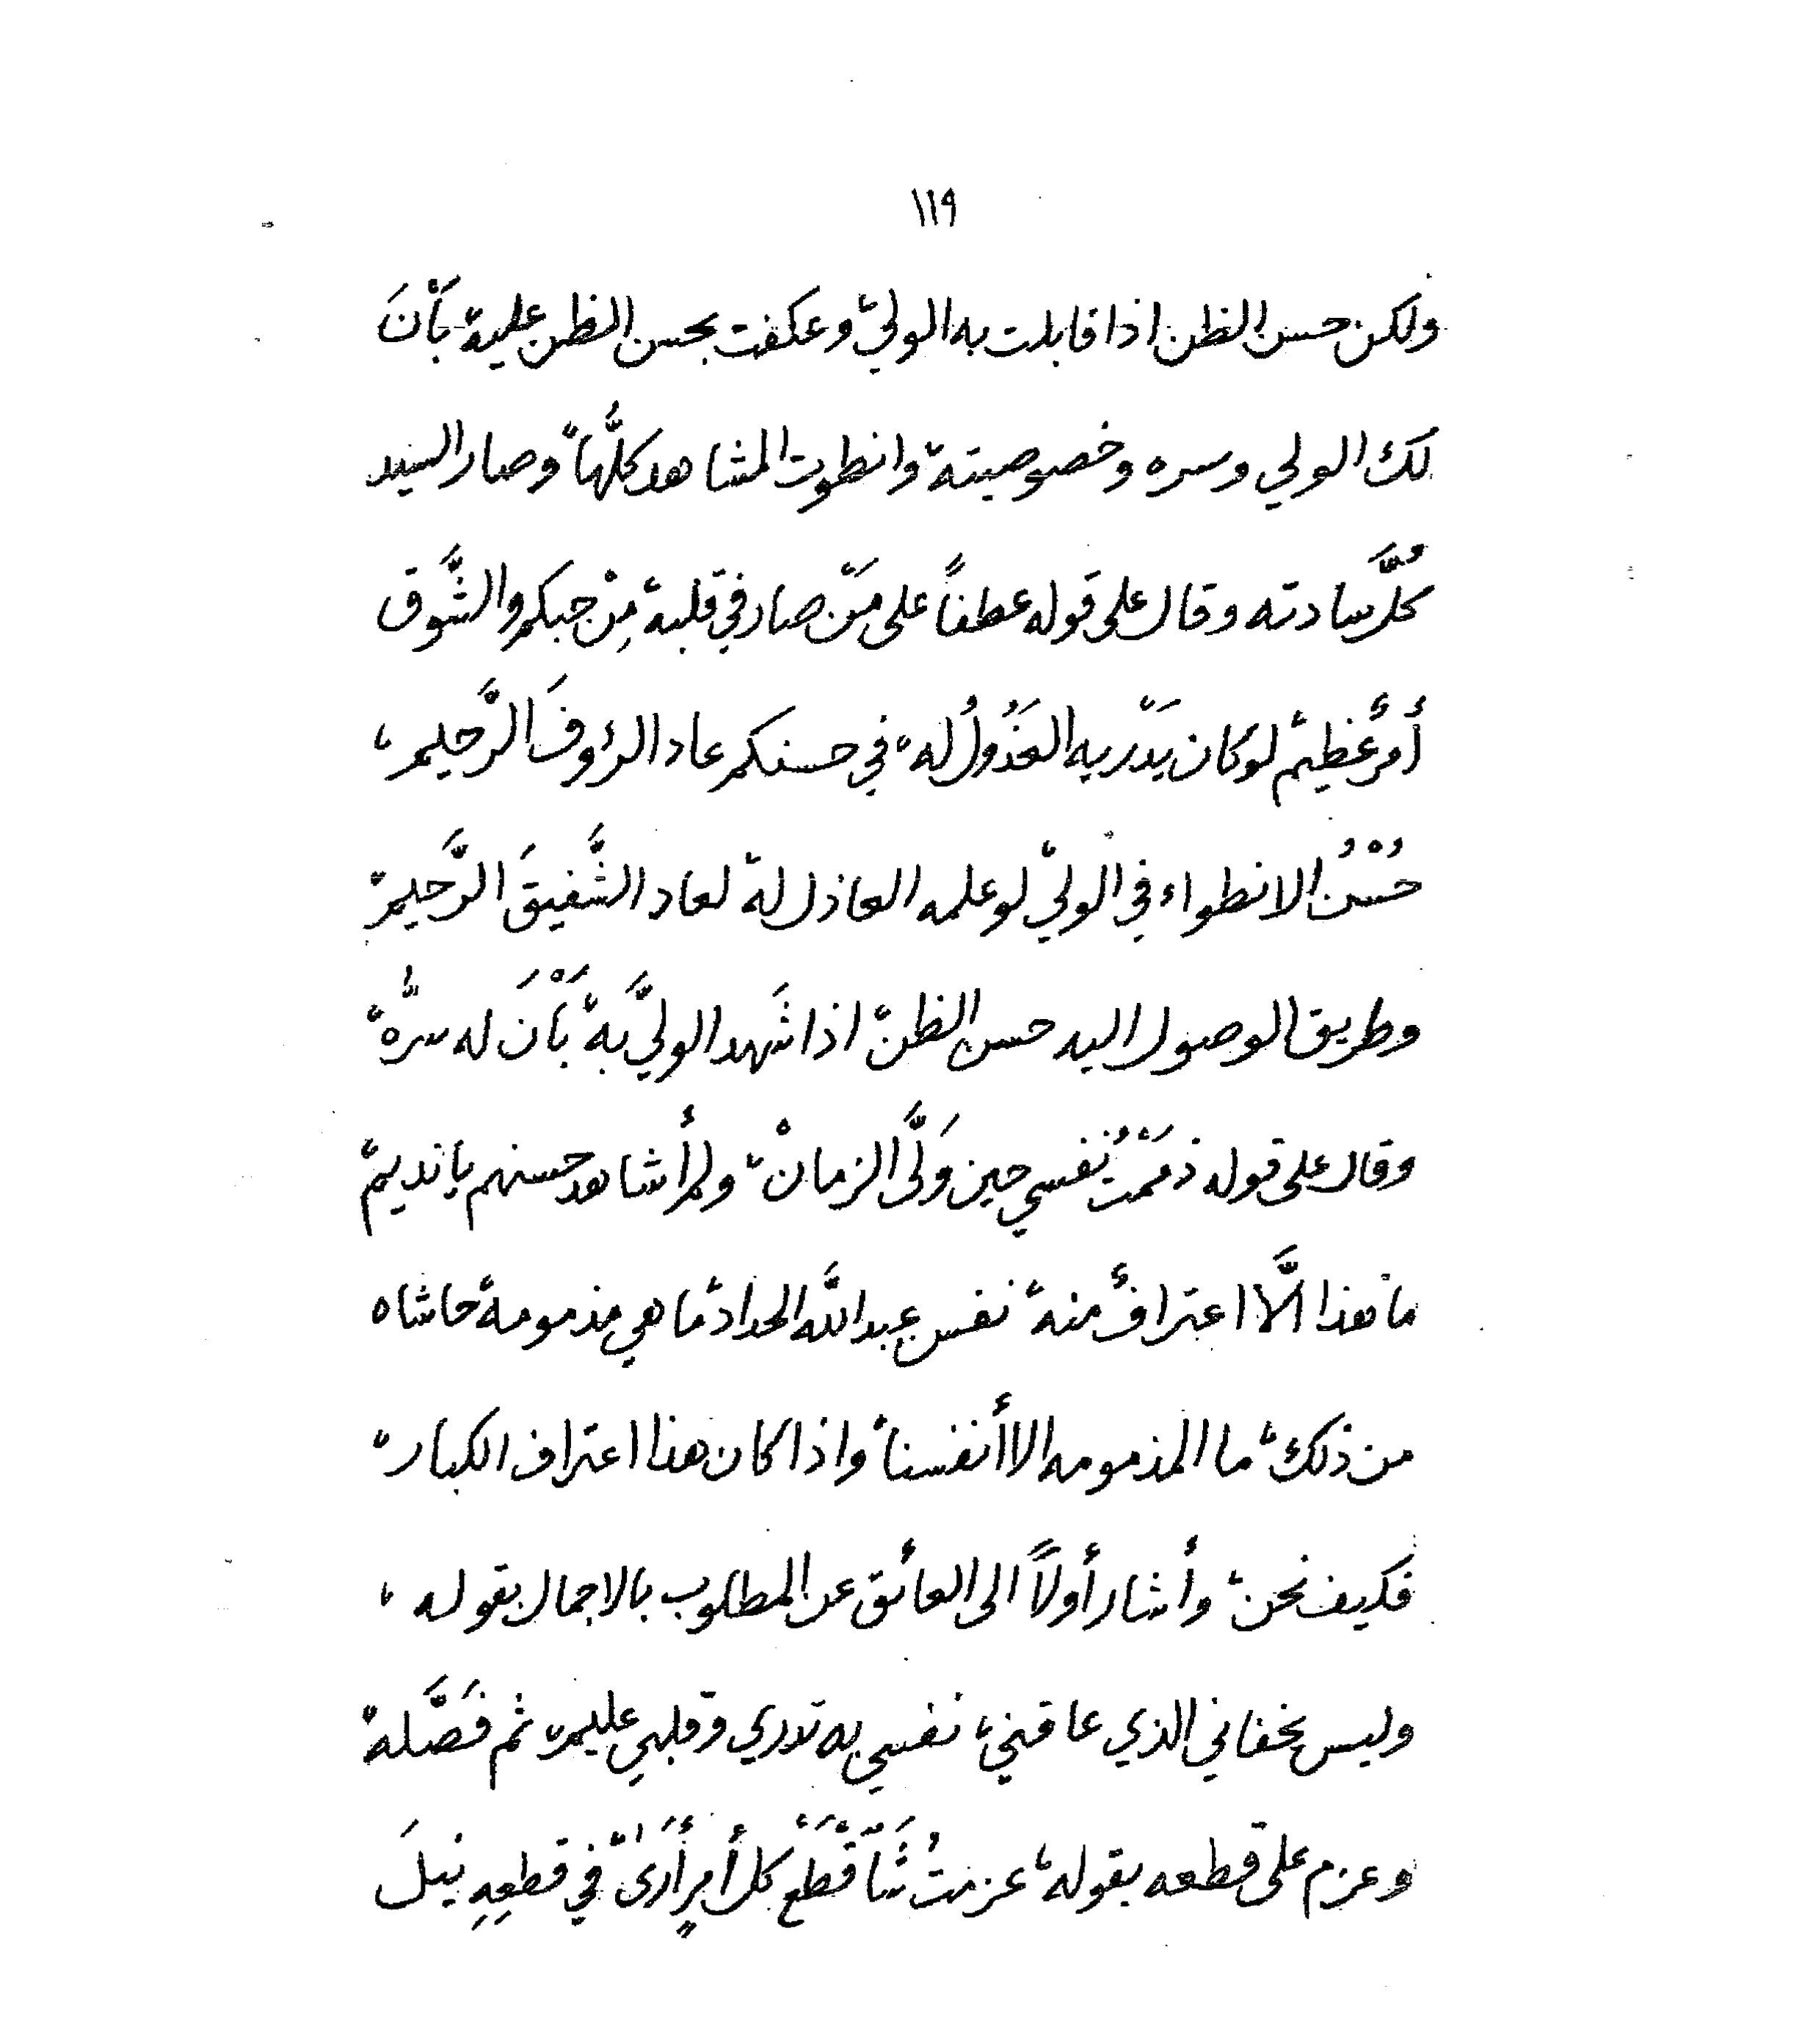 ١١٩
ولكن حسن الظن اذا قابلت به الوليّ، وعكفت بحسن الظن عليهْ بَأَنَ
لك الولي وسره وخصوصيتهْ وانطوت المشاهد كلُّها، وصار السيد
كُلَّ سادته وقال على قوله عطفاً على مَنْ صار في قلبهْ مِنْ حبكم والشَّوق
أمرٌ عَظِيمْ لو كان يَدْريه العَذُولُ لهْ، في حسنكم عاد الرؤوفَ الرَّحيم،
حُسْنُ الانطواء في الوليّ لو علمه العاذل لهْ لعاد الشَّفيقَ الرَّحيمْ
وطريق الوصول اليه حسن الظنّ اذا شَهد الوليَّ بهْ بَأَنَ له سرُّهْ
وقال على قوله ذمَمْتُ نفسي حين وَلَّى الزمانْ، ولم أشاهد حسنهم يا نديمْ
ما هذا الَّا اعترافٌ منهْ، نفس عبدالله الحداد ما هي مذمومهْ حاشاه
من ذلك، ما المذمومه الا أنفسنا، واذا كان هذا اعتراف الكبار،
فكيف نحن، وأشار أولاً الى العائق عن المطلوب بالاجمال بقوله،
وليس يخفاني الذي عاقني، نفسي به تدري وقلبي عليمْ ثم فَصَّلهْ
وعزم على قطعه بقوله، عزمتُ قَطْعَ كل أمرٍ أَرَىٰ، في قطعِهِ نيلَ